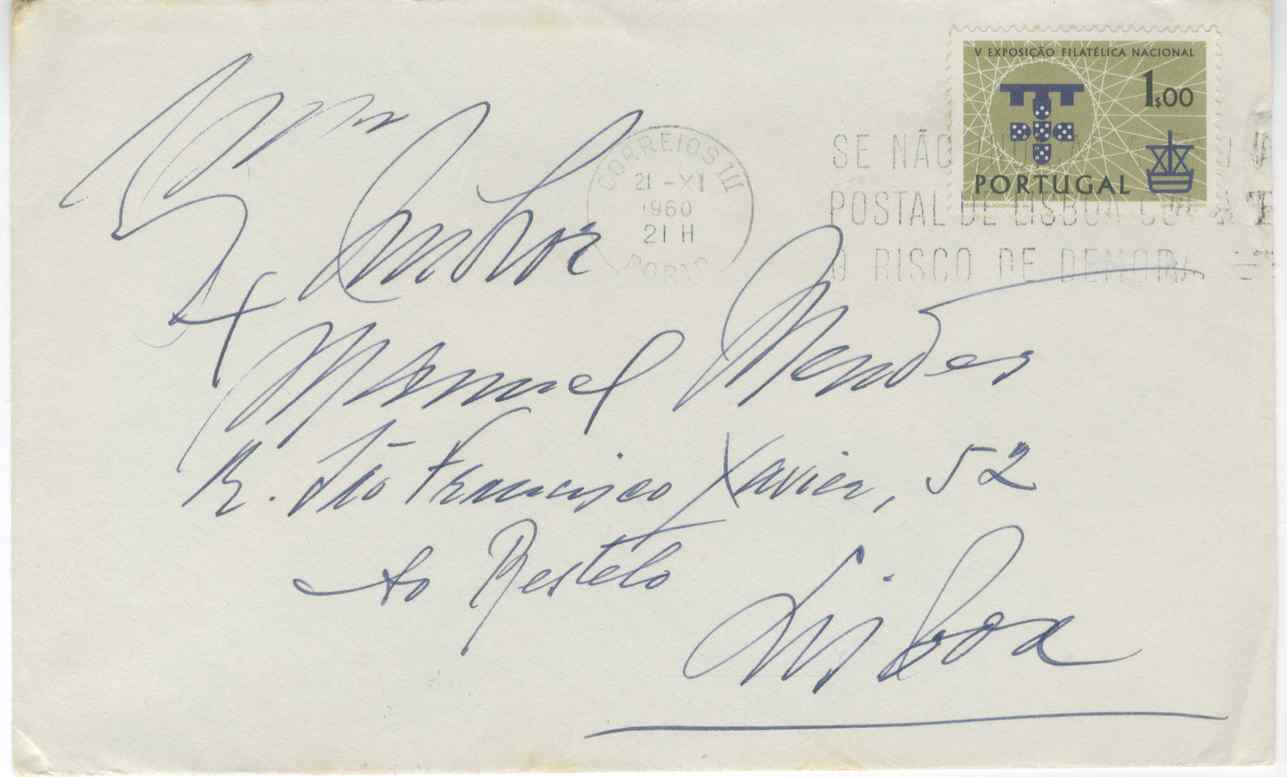 V EXPOSIÇÃO FILATÉLICA NACIONAL
1$00
PORTUGAL
CORREIOS III
21-XI
1960
21 H
PORTO
SE NÃO
POSTAL DE LISBOA
O RISCO DE DEMORA
Senhor
Manuel Mendes
R. São Francisco Xavier, 52
Ao Restelo
Lisboa